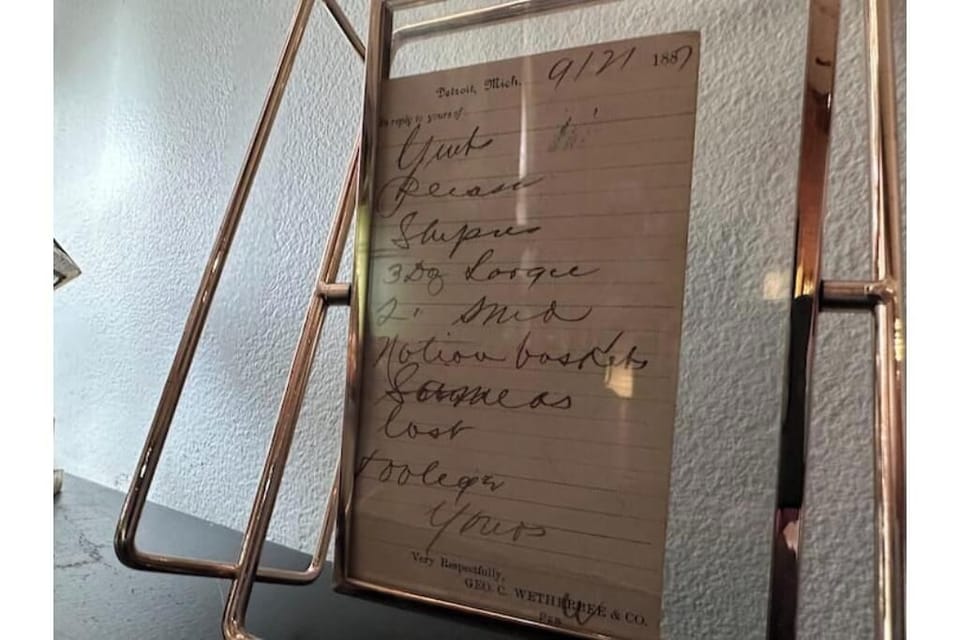 Detroit, Mich. 9/21 1887
In reply to yours of
Gents
Please
Ship us
3 Dz Large
2 " Med
Notion baskets
Same as
last
Yours
Very Respectfully,
GEO. C. WETHERBEE & CO.
Per